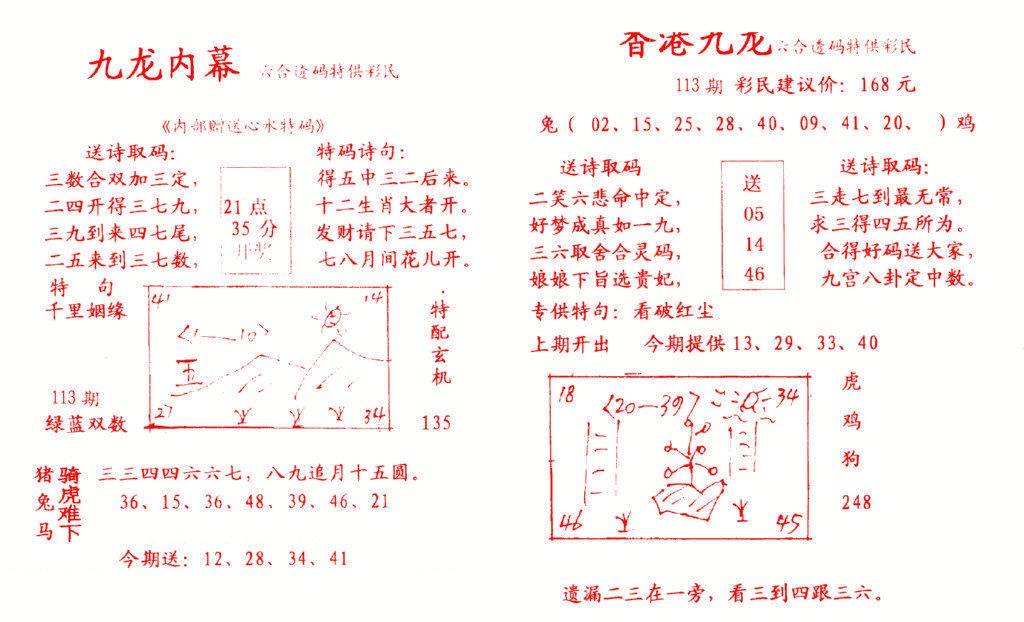 九龙内幕 六合透码特供彩民
《内部赠送心水特码》
送诗取码:
三数合双加三定,
二四开得三七九,
三九到来四七尾,
二五来到三七数,
21点
35分
开奖
特码诗句:
得五中三二后来。
十二生肖大者开。
发财请下三五七,
七八月间花儿开。
特 句
千里姻缘
113期
绿蓝双数
41 14
〈1—10〉
五
27 34
特配玄机
135
猪兔马
骑虎难下
三三四四六六七,八九追月十五圆。
36、15、36、48、39、46、21
今期送:12、28、34、41
香港九龙六合透码特供彩民
113期 彩民建议价:168元
兔( 02、15、25、28、40、09、41、20、 )鸡
送诗取码
二笑六悲命中定,
好梦成真如一九,
三六取舍合灵码,
娘娘下旨选贵妃,
送
05
14
46
送诗取码:
三走七到最无常,
求三得四五所为。
合得好码送大家,
九宫八卦定中数。
专供特句:看破红尘
上期开出 今期提供13、29、33、40
18 〈20—39〉 34
46 45
虎
鸡
狗
248
遗漏二三在一旁,看三到四跟三六。